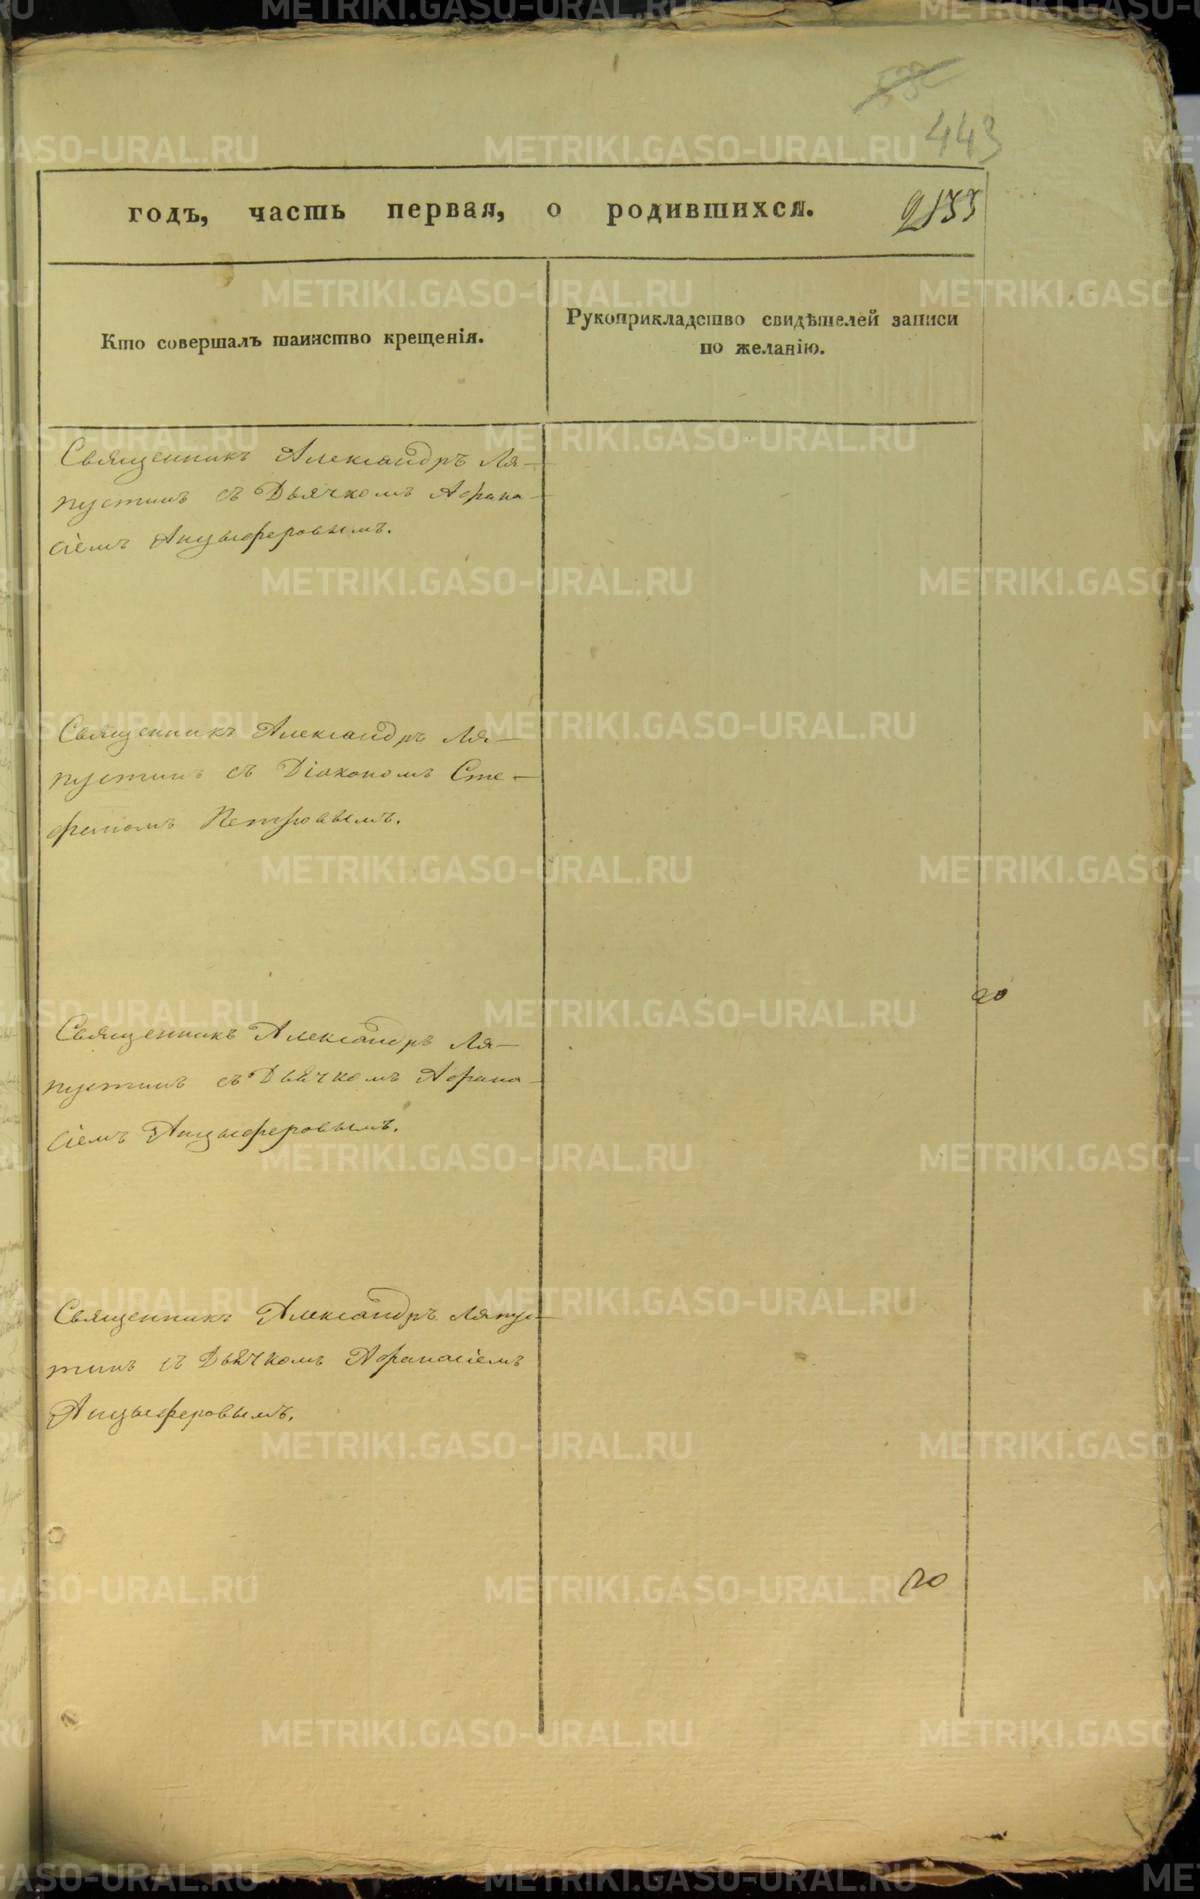 443
годъ, часть первая, о родившихся. 2133
Кто совершалъ таинство крещенія.
Рукоприкладство свидѣтелей записи
по желанію.
Священникъ Александръ Ля-
пустинъ съ Дьячкомъ Афана-
сіемъ Анцыферовымъ.
Священникъ Александръ Ля-
пустинъ съ Діакономъ Сте-
фаномъ Петровымъ.
20
Священникъ Александръ Ля-
пустинъ съ Дьячкомъ Афана-
сіемъ Анцыферовымъ.
Священникъ Александръ Ляпус-
тинъ съ Дьячкомъ Афанасіемъ
Анцыферовымъ.
20
METRIKI.GASO-URAL.RU